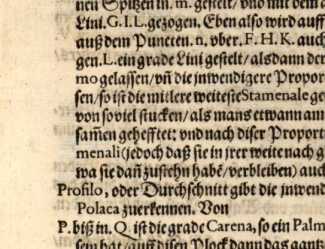 nen Spitzen in. m. gestelt / vnd mit dem a
Lini. G. I. L. gezogen. Eben also wird auff
auß dem Puncten. n. vber. F. H. K. auch
gen. L. ein grade Lini gestelt / alsdann der
mo gelassen / vñ die inwendige Propor
sen / so ist die mitlere weiteste Stamenale ge
von so viel stucken / als mans etwann am
sam̃en gehefftet: vnd nach diser Proport
menali (jedoch daß sie in jrer weite nach g
wa sie dañ zustehn habẽ / verbleiben) auch
Profilo, oder Durchschnitt gibt die inwen
Polaca zuerkennen. Von
P. biß in. Q. ist die grade Carena, so ein Palm
sem hat / auff disen Block dann das gantz